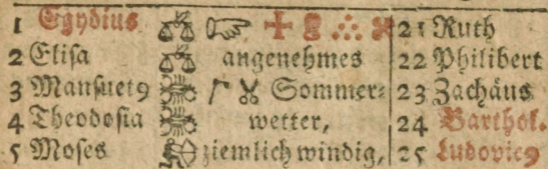 1 Egydius 21 Ruth
2 Elisa angenehmes 22 Philibert
3 Mansuet9 Sommer= 23 Zachäus
4 Theodosia wetter, 24 Barthol.
5 Moses ziemlich windig, 25 Ludovic9